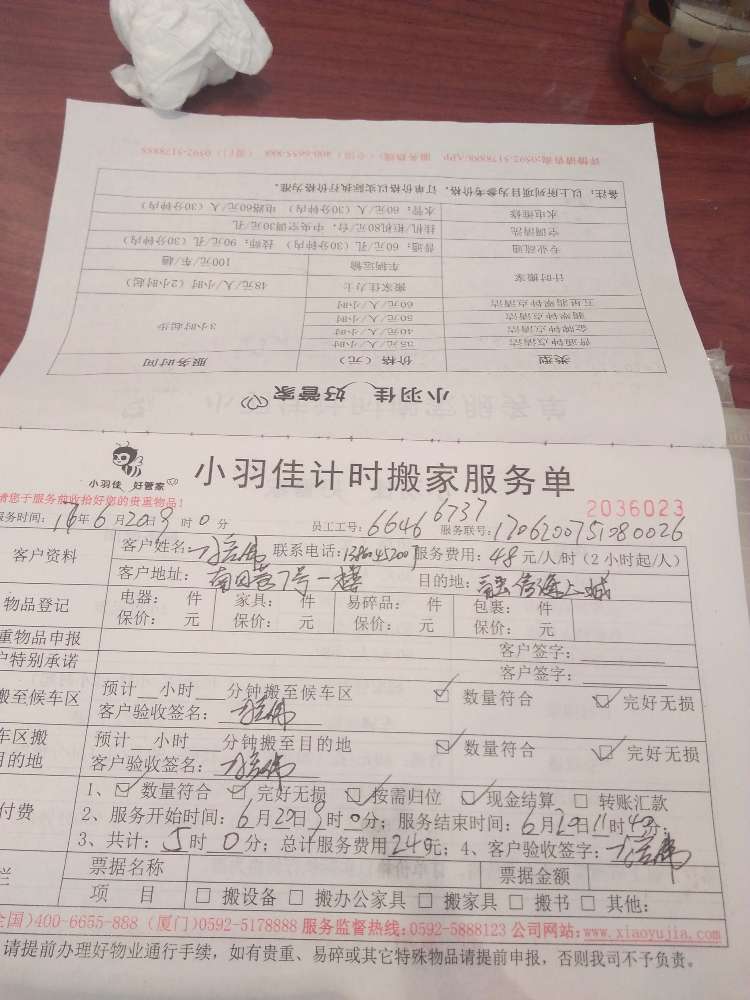 详情请咨询:0592-5178888/APP 服务热线:(全国)400-6655-888 (厦门)0592-5178888
备注:以上所列项目为参考价格,订单价格以实际执行价格为准。
水电维修 水管:60元/人(30分钟内) 电路60元/人(30分钟内)
空调清洗 挂机/柜机80元/台,中央空调30元/孔
专业疏通 普通:60元/孔(30分钟内) 特殊:90元/孔(30分钟内)
计时搬家 车辆运输 100元/车/趟
搬家佳力士 48元/人/小时(2小时起)
五星翡翠钟点清洁 60元/人/小时
翡翠钟点清洁 50元/人/小时
金牌钟点清洁 40元/人/小时 3小时起步
普通钟点清洁 35元/人/小时
类型 价格(元) 服务时间
小羽佳 好管家
小羽佳 好管家
小羽佳计时搬家服务单
请您于服务前收拾好您的贵重物品!
2036023
服务时间: 年6月20日9时0分 员工工号:6646 6737 服务联号:1706200751080026
客户资料 客户姓名: 联系电话: 服务费用:48元/人/时(2小时起/人)
客户地址: 7号一楼 目的地: 海上城
物品登记 电器: 件 家具: 件 易碎品: 件 包裹: 件
保价: 元 保价: 元 保价: 元 保价: 元
重物品申报 客户签字:
户特别承诺 客户签字:
搬至候车区 预计 小时 分钟搬至候车区 数量符合 完好无损
客户验收签名:
车区搬 预计 小时 分钟搬至目的地 数量符合 完好无损
目的地 客户验收签名:
付费 1、 数量符合 完好无损 按需归位 现金结算 转账汇款
2、服务开始时间:6月20日9时0分;服务结束时间:6月20日11时40分;
3、共计:5时0分;总计服务费用240元;4、客户验收签字:
栏 票据名称 票据金额
项 目 搬设备 搬办公家具 搬家具 搬书 其他:
全国)400-6655-888(厦门)0592-5178888 服务监督热线:0592-5888123 公司网站:www.xiaoyujia.com
请提前办理好物业通行手续,如有贵重、易碎或其它特殊物品请提前申报,否则我司不予负责。